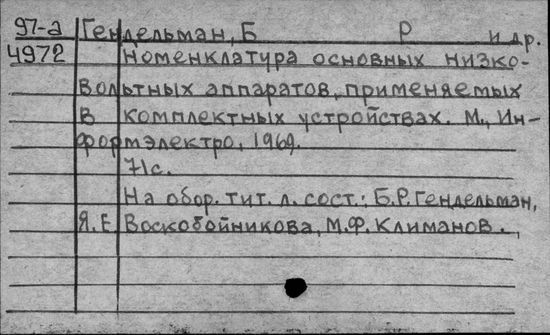 97-а Гендельман, Б Р и др.
4972 Номенклатура основных низко-
вольтных аппаратов, применяемых
в комплектных устройствах. М., Ин-
формэлектро, 1969.
71с.
На обор. тит. л. сост.: Б.Р. Гендельман,
Я.Е. Воскобойникова, М.Ф. Климанов.